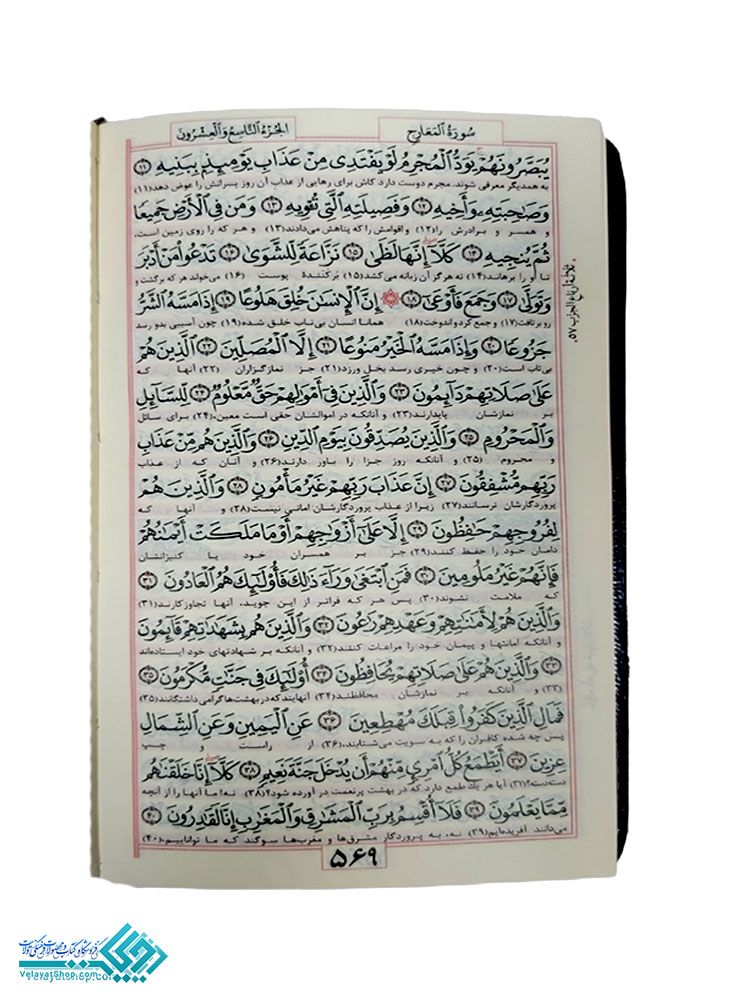 سُورَةُ الْمَعَارِجِ
الجُزْءُ التَّاسِعُ وَالْعِشْرُونَ
يُبَصَّرُونَهُمْ يَوَدُّ الْمُجْرِمُ لَوْ يَفْتَدِى مِنْ عَذَابِ يَوْمِئِذٍ بِبَنِيهِ ﴿١١﴾
به همدیگر معرفی شوند. مجرم دوست دارد کاش برای رهایی از عذاب آن روز پسرانش را عوض دهد(۱۱)
وَصَاحِبَتِهِ وَأَخِيهِ ﴿١٢﴾ وَفَصِيلَتِهِ الَّتِى تُؤْوِيهِ ﴿١٣﴾ وَمَنْ فِى الْأَرْضِ جَمِيعًا
و همسر و برادرش را(۱۲) و اقوامش که پناهش می‌دادند(۱۳) و هر که را روی زمین است،
ثُمَّ يُنْجِيهِ ﴿١٤﴾ كَلَّا إِنَّهَا لَظَى ﴿١٥﴾ نَزَّاعَةً لِلشَّوَى ﴿١٦﴾ تَدْعُوا مَنْ أَدْبَرَ
تا او را برهانند(۱۴) نه هرگز آن زبانه می‌کشد(۱۵) برکنندهٔ پوست (۱۶) می‌خواند هر که برگشت و
وَتَوَلَّى ﴿١٧﴾ وَجَمَعَ فَأَوْعَى ﴿١٨﴾ إِنَّ الْإِنْسَانَ خُلِقَ هَلُوعًا ﴿١٩﴾ إِذَا مَسَّهُ الشَّرُّ
رو برتافت(۱۷) و جمع کرد و اندوخت(۱۸) همانا انسان بی‌تاب خلق شده(۱۹) چون آسیبی بدو رسد
جَزُوعًا ﴿٢٠﴾ وَإِذَا مَسَّهُ الْخَيْرُ مَنُوعًا ﴿٢١﴾ إِلَّا الْمُصَلِّينَ ﴿٢٢﴾ الَّذِينَ هُمْ
بی‌تاب است(۲۰) و چون خیری رسد بخل ورزد(۲۱) جز نمازگزاران (۲۲) آنها که
عَلَى صَلَاتِهِمْ دَائِمُونَ ﴿٢٣﴾ وَالَّذِينَ فِى أَمْوَالِهِمْ حَقٌّ مَعْلُومٌ ﴿٢٤﴾ لِلسَّائِلِ
بر نمازشان پایدارند(۲۳) و آنانکه در اموالشان حقی است معین،(۲۴) برای سائل
وَالْمَحْرُومِ ﴿٢٥﴾ وَالَّذِينَ يُصَدِّقُونَ بِيَوْمِ الدِّينِ ﴿٢٦﴾ وَالَّذِينَ هُمْ مِنْ عَذَابِ
و محروم (۲۵) و آنانکه روز جزا را باور دارند(۲۶) و آنان که از عذاب
رَبِّهِمْ مُشْفِقُونَ ﴿٢٧﴾ إِنَّ عَذَابَ رَبِّهِمْ غَيْرُ مَأْمُونٍ ﴿٢٨﴾ وَالَّذِينَ هُمْ
پروردگارشان ترسانند(۲۷) زیرا از عذاب پروردگارشان امانی نیست(۲۸) و آنها که
لِفُرُوجِهِمْ حَافِظُونَ ﴿٢٩﴾ إِلَّا عَلَى أَزْوَاجِهِمْ أَوْ مَا مَلَكَتْ أَيْمَانُهُمْ
دامان خود را حفظ کنند(۲۹) جز بر همسران خود یا کنیزانشان
فَإِنَّهُمْ غَيْرُ مَلُومِينَ ﴿٣٠﴾ فَمَنِ ابْتَغَى وَرَاءَ ذَلِكَ فَأُولَئِكَ هُمُ الْعَادُونَ ﴿٣١﴾
که ملامت نشوند(۳۰) پس هر که فراتر از این جوید، آنها تجاوزکارند(۳۱)
وَالَّذِينَ هُمْ لِأَمَانَاتِهِمْ وَعَهْدِهِمْ رَاعُونَ ﴿٣٢﴾ وَالَّذِينَ هُمْ بِشَهَادَاتِهِمْ قَائِمُونَ
و آنانکه امانتها و پیمان خود را مراعات کنند(۳۲) و آنانکه بر شهادتهای خود ایستاده‌اند
﴿٣٣﴾ وَالَّذِينَ هُمْ عَلَى صَلَاتِهِمْ يُحَافِظُونَ ﴿٣٤﴾ أُولَئِكَ فِى جَنَّاتٍ مُكْرَمُونَ ﴿٣٥﴾
(۳۳) و آنانکه بر نمازشان محافظتند(۳۴) آنهایند که در بهشت‌ها گرامی داشتگانند(۳۵)
فَمَالِ الَّذِينَ كَفَرُوا قِبَلَكَ مُهْطِعِينَ ﴿٣٦﴾ عَنِ الْيَمِينِ وَعَنِ الشِّمَالِ
پس چه شده کافران را که به سویت می‌شتابند،(۳۶) از راست و چپ
عِزِينَ ﴿٣٧﴾ أَيَطْمَعُ كُلُّ امْرِئٍ مِنْهُمْ أَنْ يُدْخَلَ جَنَّةَ نَعِيمٍ ﴿٣٨﴾ كَلَّا إِنَّا خَلَقْنَاهُمْ
دسته‌دسته؟(۳۷) آیا هر یک طمع دارد که در بهشت پرنعمت در آورده شود؟(۳۸) نه! ما آنها را از آنچه
مِمَّا يَعْلَمُونَ ﴿٣٩﴾ فَلَا أُقْسِمُ بِرَبِّ الْمَشَارِقِ وَالْمَغَارِبِ إِنَّا لَقَادِرُونَ ﴿٤٠﴾
می‌دانند آفریده‌ایم(۳۹) نه، به پروردگار مشرق‌ها و مغرب‌ها سوگند که ما تواناییم،(۴۰)
۵۶۹
ثلاثة ارباع الحزب ۵۷
فروشگاه کتاب و محصولات فرهنگی ولایت
VelayatShop.com
Velayatshop.com